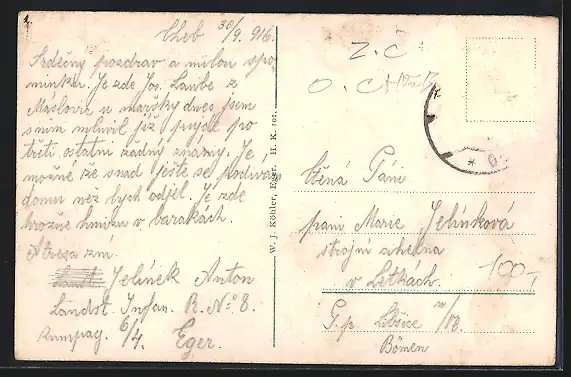 Cheb 30/9. 916.
Srdečný pozdrav a milou vpo-
minku. Je zde Jos. Laube z
Máslovic u maršky dnes jsem
s nim mluvil již pujde po
třetí ostatní žádný známy. Je
možné že snad ještě se podívám
domu než bych odjel. Je zde
hrozně hmizu v barakách.
Atresa zní
Jelínek Anton
Landst. Infan. R. No 8.
Kumpag. 6/4. Eger.
W. J. Köhler, Eger. H. K. 101.
Z. Č.
O.
Ctěná Páni
paní Marie Jelínková
strojní
v Letkách.
100,-
G. p. Libšice n/V.
Bömen